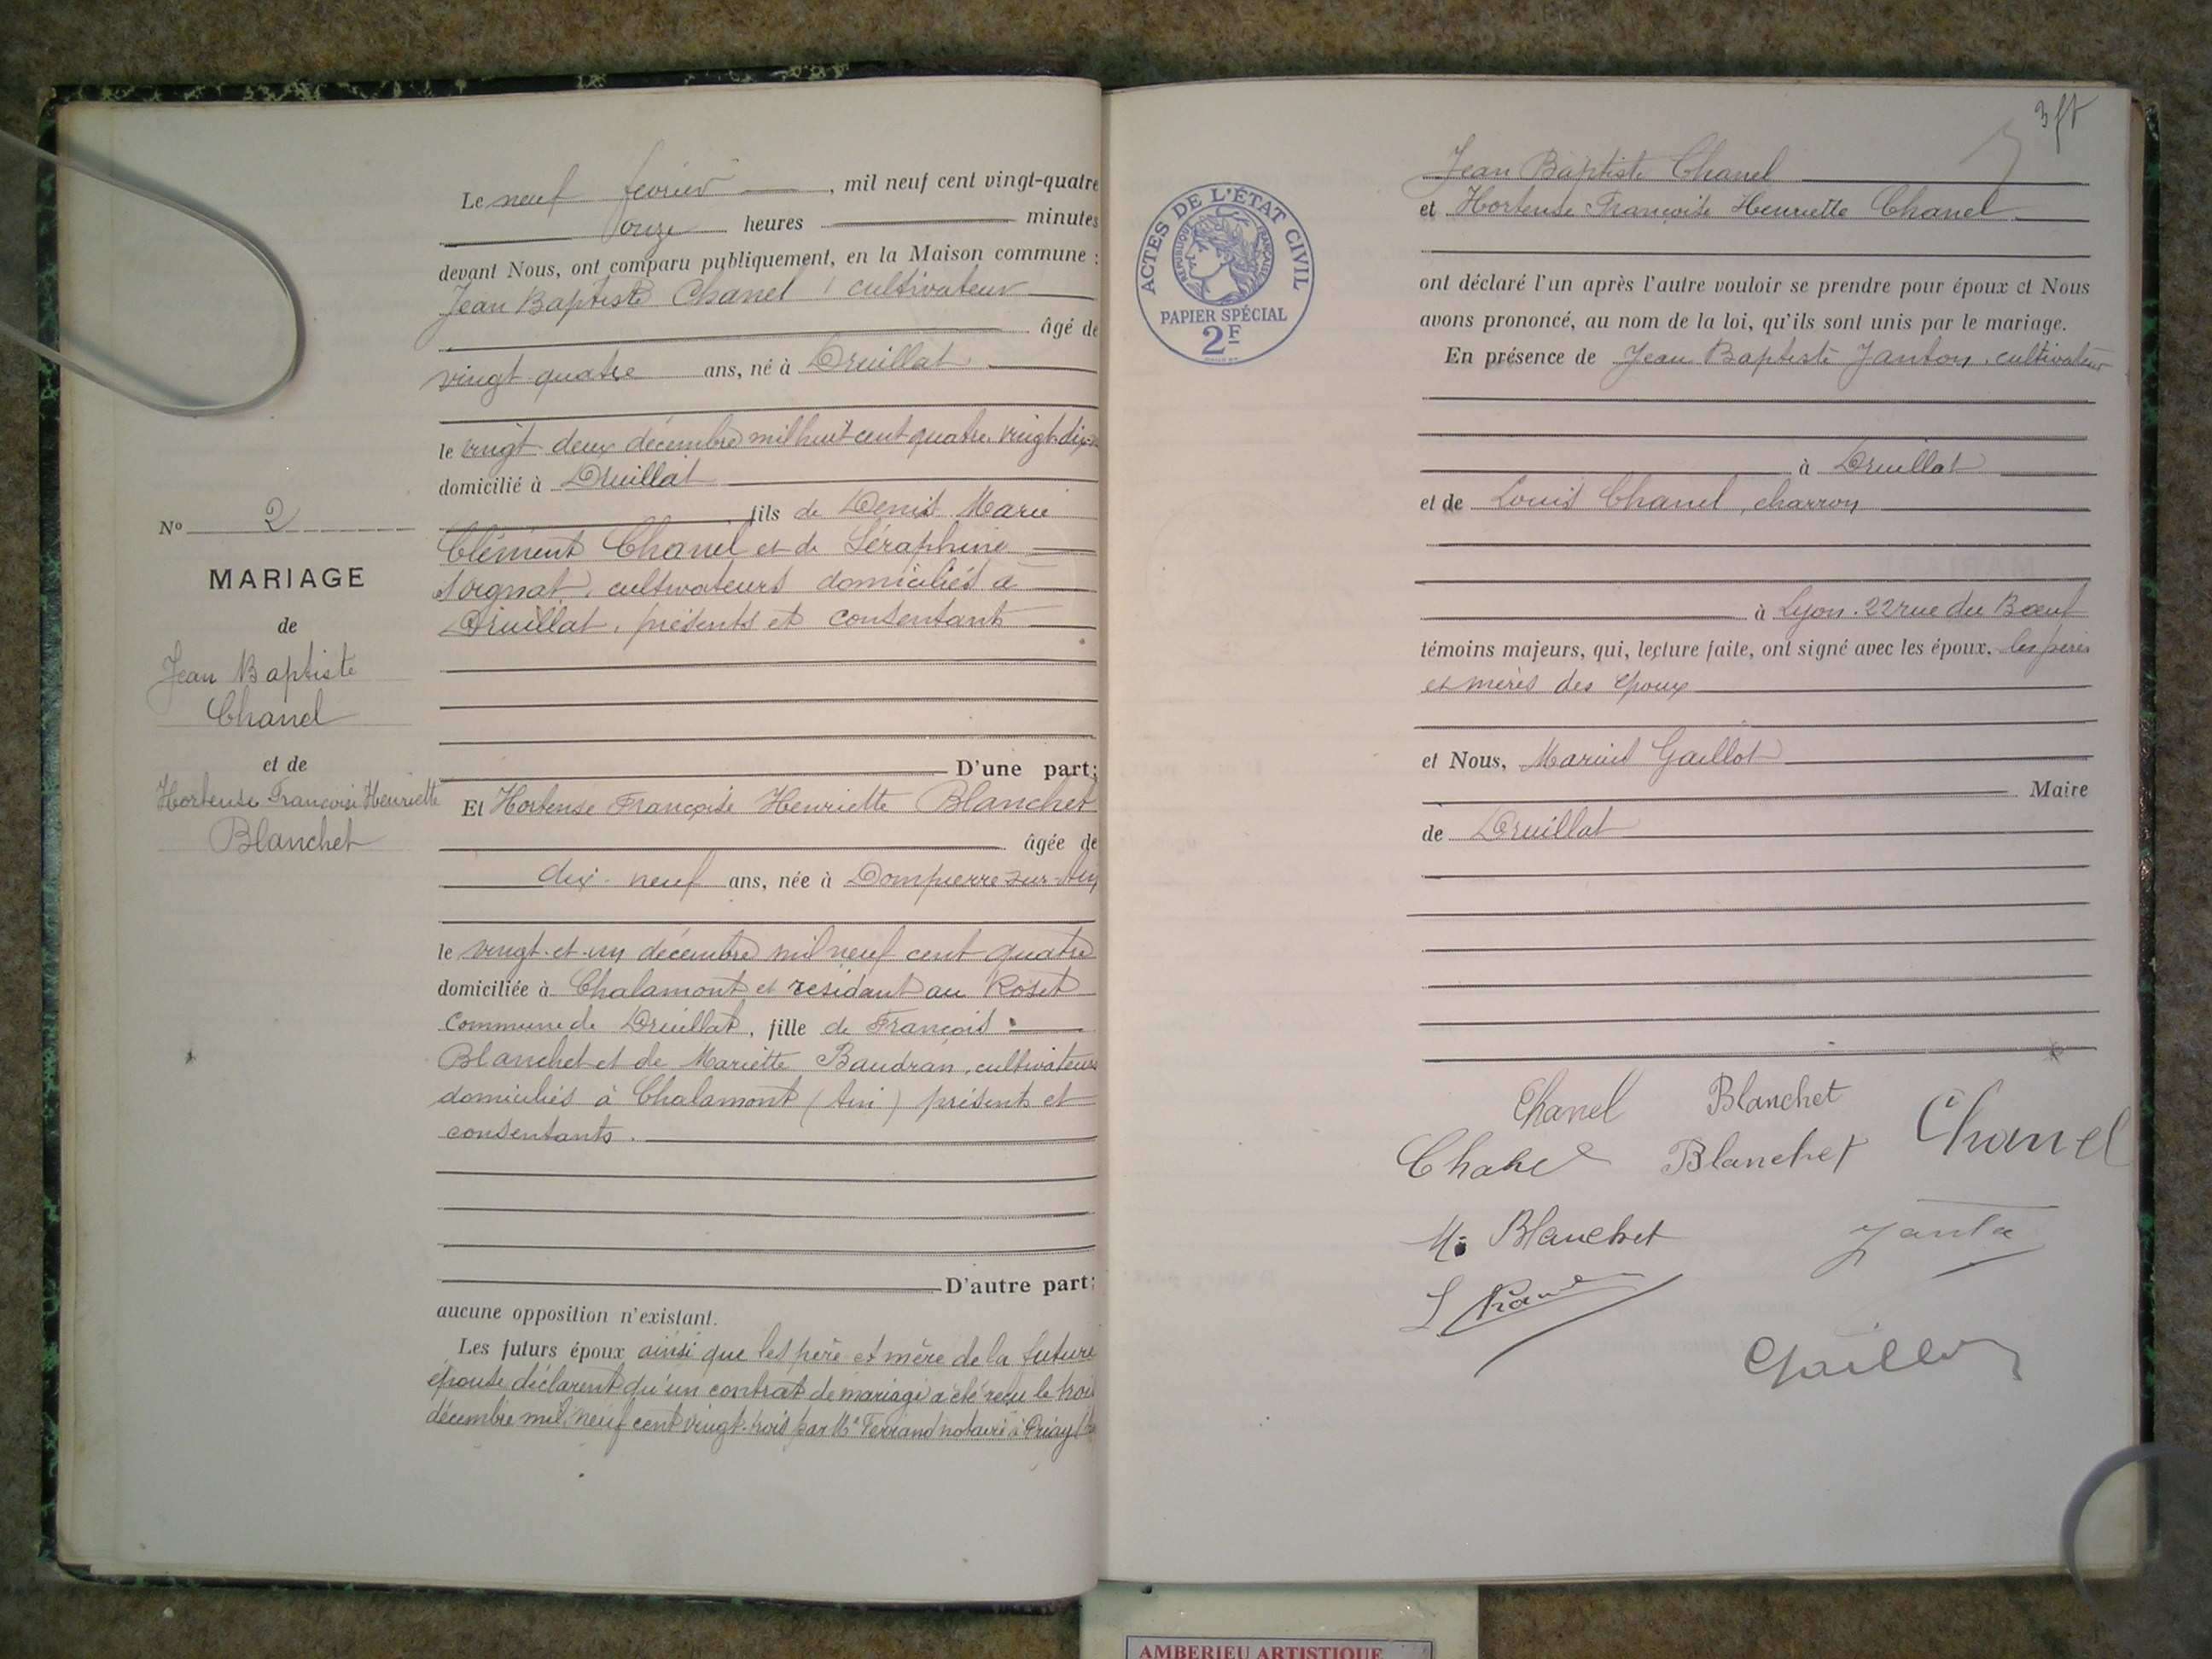 Le neuf février, mil neuf cent vingt-quatre
onze heures minutes
devant Nous, ont comparu publiquement, en la Maison commune :
Jean Baptiste Chanel, cultivateur
âgé de
vingt quatre ans, né à Druillat
le vingt deux décembre mil huit cent quatre vingt dix
domicilié à Druillat
fils de Denis Marie
Clément Chanel et de Séraphine
Sorgnat, cultivateurs domiciliés à
Druillat, présents et consentants
D'une part;
Et Hortense Françoise Henriette Blanchet
âgée de
dix-neuf ans, née à Dompierre-sur-Ain
le vingt-et-un décembre mil neuf cent quatre
domiciliée à Chalamont et résidant au Roset
commune de Druillat, fille de François
Blanchet et de Mariette Baudran, cultivateurs
domiciliés à Chalamont (Ain) présents et
consentants.
D'autre part;
aucune opposition n'existant.
Les futurs époux ainsi que les père et mère de la future
épouse déclarent qu'un contrat de mariage a été reçu le trois
décembre mil neuf cent vingt-trois par Me Ferrand notaire à Priay
No 2
MARIAGE
de
Jean Baptiste
Chanel
et de
Hortense Françoise Henriette
Blanchet
ACTES DE L'ÉTAT CIVIL
RÉPUBLIQUE FRANÇAISE
PAPIER SPÉCIAL
2F
Jean Baptiste Chanel
et Hortense Françoise Henriette Chanel
ont déclaré l'un après l'autre vouloir se prendre pour époux et Nous
avons prononcé, au nom de la loi, qu'ils sont unis par le mariage.
En présence de Jean Baptiste Janton, cultivateur
à Druillat
et de Louis Chanel, charron
à Lyon. 22 rue du Bœuf
témoins majeurs, qui, lecture faite, ont signé avec les époux, les pères
et mères des époux
et Nous, Marius Gaillot
Maire
de Druillat
Chanel Blanchet Chanel
Chanel Blanchet
M. Blanchet
Gaillot
AMBERIEU ARTISTIQUE